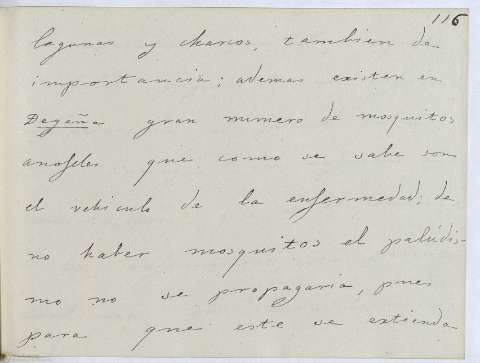 116
lagunas y charcos, tambien de
importancia; ademas existen en
Degaña gran numero de mosquitos
anofeles que como se sabe son
el vehiculo de la enfermedad; de
no haber mosquitos el palúdis-
mo no se propagaria, pues
para que este se extienda